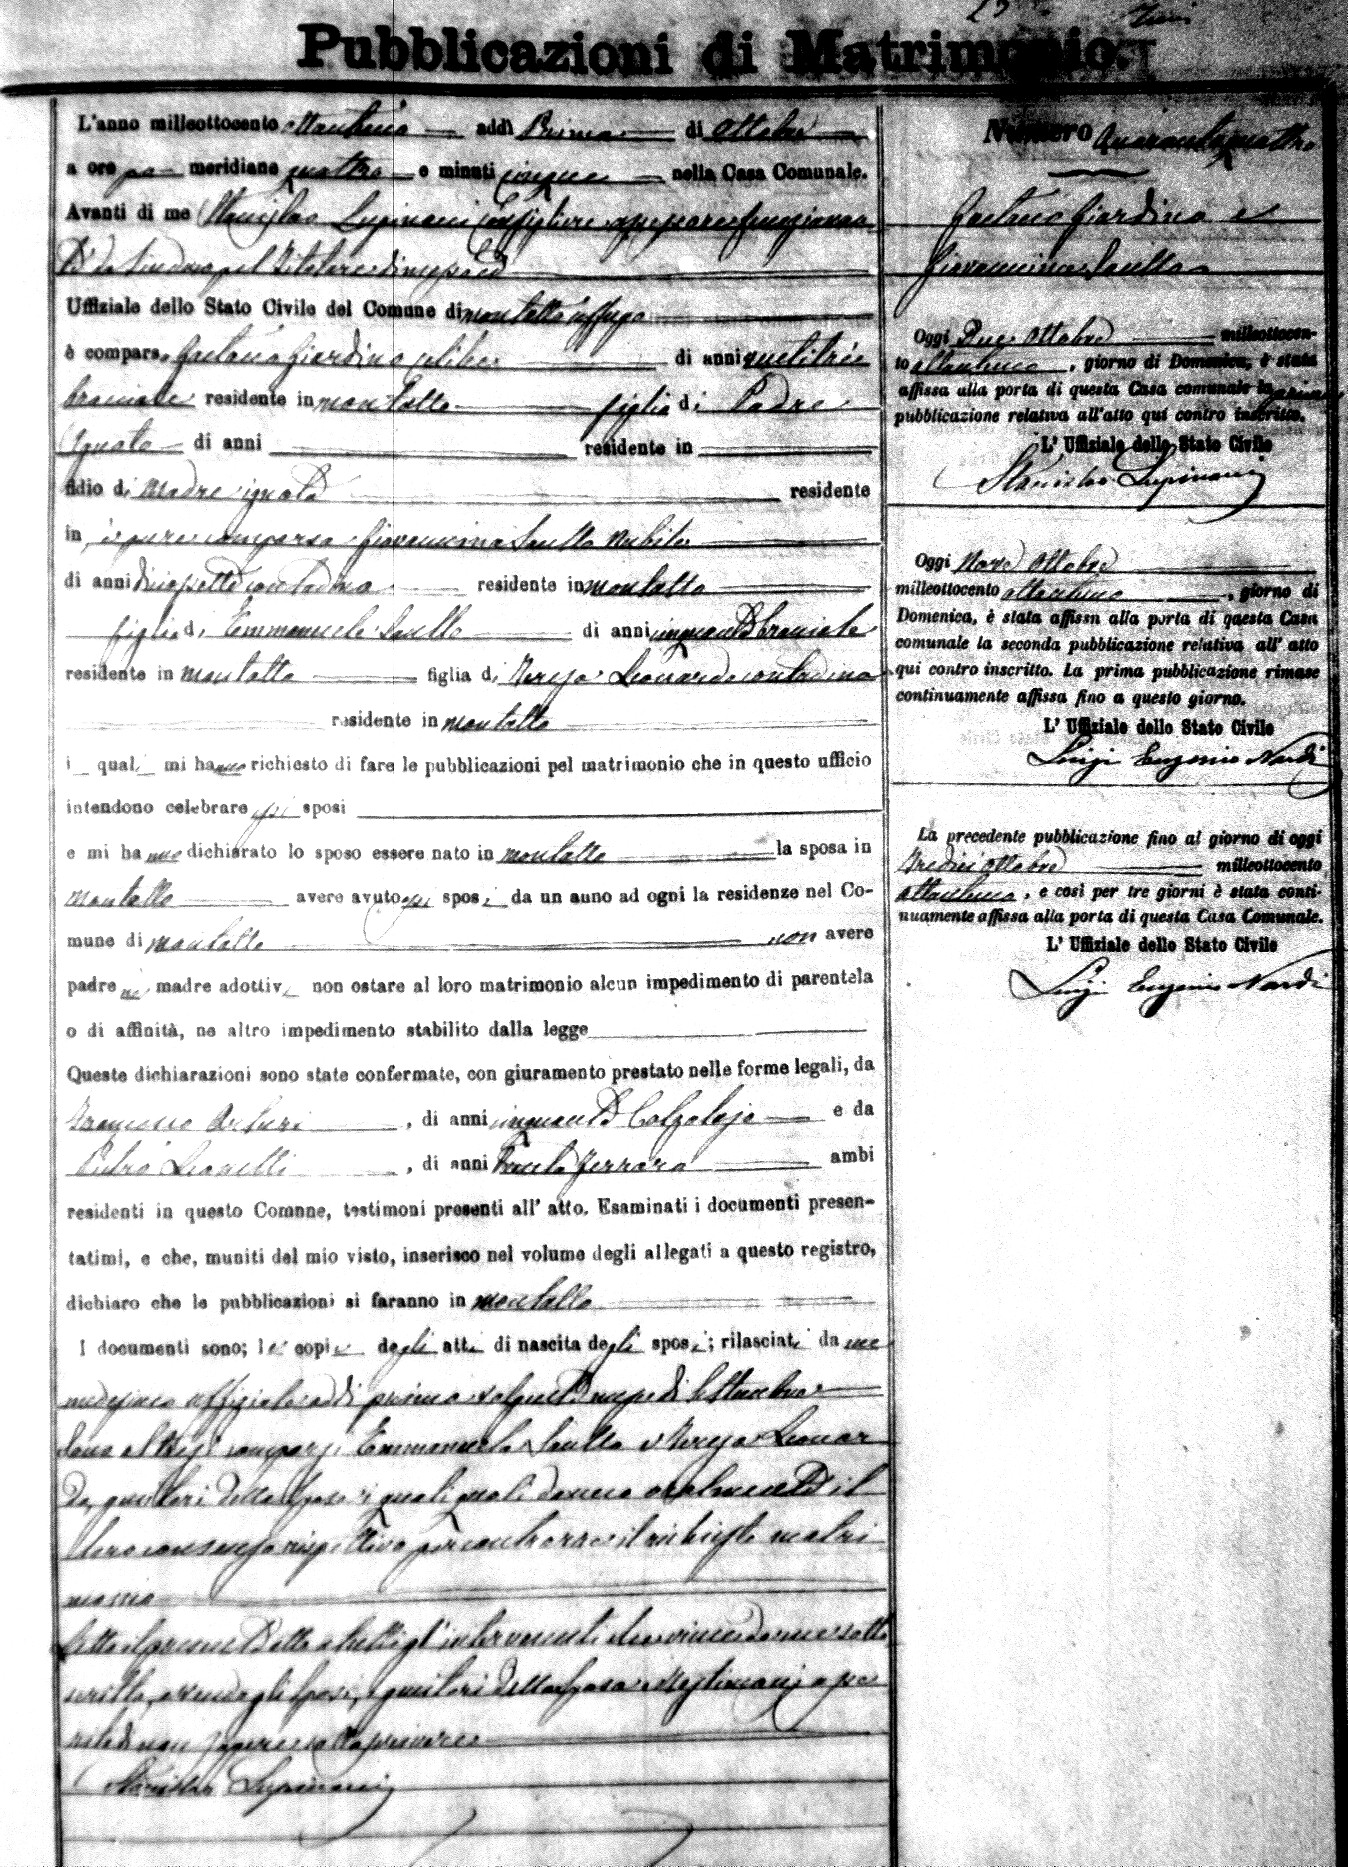 Pubblicazioni di Matrimonio.
L'anno milleottocento ottantuno addì Primo di Ottobre
a ore po meridiane quattro e minuti cinque nella Casa Comunale.
Avanti di me Stanislao Lupinacci Consigliere assessore funzionan
da Sindaco pel Titolare
Uffiziale dello Stato Civile del Comune di Montalto Uffugo
è comparso Gaetano Giardino celibe di anni ventitrè
bracciale residente in Montalto figlio di Padre
Ignoto di anni residente in
fidio di Madre ignota residente
in, è pure comparsa Giovannina Saullo nubile
di anni diciasette contadina residente in Montalto
figlia di Emmanuele Saullo di anni cinquanta bracciale
residente in Montalto figlia di Teresa Leonardo contadina
residente in Montalto
i quali mi hanno richiesto di fare le pubblicazioni pel matrimonio che in questo ufficio
intendono celebrare essi sposi
e mi hanno dichiarato lo sposo essere nato in Montalto la sposa in
Montalto avere avuto essi sposi da un anno ad ogni la residenze nel Co-
mune di Montalto non avere
padre nè madre adottivi non ostare al loro matrimonio alcun impedimento di parentela
o di affinità, ne altro impedimento stabilito dalla legge
Queste dichiarazioni sono state confermate, con giuramento prestato nelle forme legali, da
Francesco Arturi, di anni cinquanta Calzolajo e da
Pietro Leonetti, di anni trenta Ferraro ambi
residenti in questo Comune, testimoni presenti all' atto. Esaminati i documenti presen-
tatimi, e che, muniti del mio visto, inserisco nel volume degli allegati a questo registro,
dichiaro che le pubblicazioni si faranno in Montalto
I documenti sono; le copie degli atti di nascita degli sposi; rilasciati da me
medesimo uffiziale addì primo
sono altresì comparsi Emmanuele Saullo e Teresa Leonar
do, genitori della sposa i quali quali danno oralmente il
loro consenso rispettivo per contrarre il richiesto matri
monio
Letto il presente atto a tutti gl'intervenuti
scritto, avendo gli sposi, i genitori della sposa e testimoni
di non sapere sottoscrivere
Stanislao Lupinacci
Numero Quarantaquattro
Gaetano Giardino e
Giovannina Saullo
Oggi Due Ottobre milleottocen-
to ottantuno, giorno di Domenica, è stata
affissa alla porta di questa Casa comunale la prima
pubblicazione relativa all'atto qui contro inscritto.
L' Uffiziale dello Stato Civile
Stanislao Lupinacci
Oggi Nove Ottobre
milleottocento ottantuno, giorno di
Domenica, è stata affissa alla porta di questa Casa
comunale la seconda pubblicazione relativa all' atto
qui contro inscritto. La prima pubblicazione rimase
continuamente affissa fino a questo giorno.
L' Uffiziale dello Stato Civile
Luigi Eugenio Nardi
La precedente pubblicazione fino al giorno di oggi
Tredici Ottobre milleottocento
ottantuno, e così per tre giorni è stata conti-
nuamente affissa alla porta di questa Casa Comunale.
L' Uffiziale dello Stato Civile
Luigi Eugenio Nardi